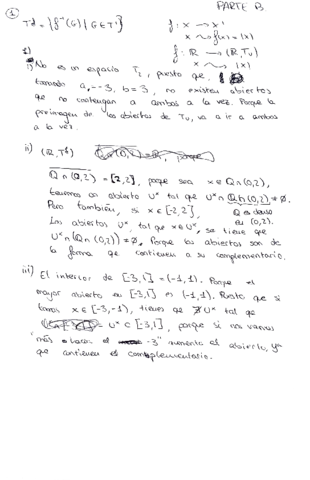 PARTE B.
①
Tf = {f⁻¹(G) | G ∈ T'}
f: X → X'
x ↝ f(x) = |x|
f: ℝ → (ℝ, Tu)
x ↝ |x|
1)
i) No es un espacio T₂, puesto que,
tomando a = -3, b = 3, no existen abiertos
que no contengan a ambos a la vez. Porque la
preimagen de los abiertos de Tu, va a ir a ambos
a la vez.
ii) (ℝ, Tf)
Q∩(0,2) = [-2,2], porque sea x ∈ Q∩(0,2),
tenemos un abierto Uˣ tal que Uˣ ∩ Q∩(0,2) ≠ ∅.
Pero también, si x ∈ [-2,2], Q es denso
en (0,2).
Los abiertos Uˣ, tal que x ∈ Uˣ, se tiene que
Uˣ ∩ (Q ∩ (0,2)) = ∅. Porque los abiertos son de
la forma que contienen a su complementario.
iii) El interior de [-3,1] = (-1,1). Porque el
mayor abierto en [-3,1] es (-1,1). Puesto que si
x ∈ [-3,-1), que ∄ Uˣ tal que
= Uˣ ⊂ [-3,1], porque si nos vamos
"más hacia el -3" aumenta el abierto, ya
que contienen el complementario.